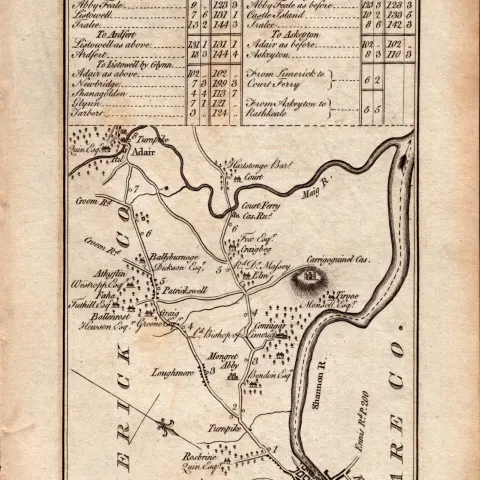 Abby Feale 9 „ 123 3
Listowell 7 6 131 1
Tralee 13 2 144 3
To Ardfert
Listowell as above 131 1 131 1
Ardfert 13 3 144 4
To Listowell by Glynn.
Adair as above 102 „ 102 „
Newbridge 7 3 109 3
Shanagolden 4 4 113 7
Glynn 7 1 121 „
Tarbert 3 „ 124 „
Abby Feale as before 123 3 123 3
Castle Island 10 2 133 5
Tralee 8 6 142 3
To Askeyton
Adair as before 102 „ 102 „
Askeyton 8 3 110 3
From Limerick to
Court Ferry 6 2
From Askeyton to
Rathkeale 5 5
8 Turnpike
Quin Esqr.
Adair
Hartstonge Bart.
Court
7
Maig R.
Croom Rd.
Court Ferry
Cas. Rus.
6
6
Fox Esqr.
Craigbeg
Croom Rd.
Ballyburnoge
Dickson Esqr.
Ld. D. Massey
Elm
Carrigogunel Cas.
5
5
Athyflin
Westropp Esqr.
Patrickswell
Faha
Tuthill Esqr.
Tervoe
Monsell Esqr.
4
Ballenrost
Hewson Esqr.
Craig
Greene Esqr.
4
Ld. Bishop of Limerick
Conniger
Mongret
Abby
3
3
Loughmore
Bendon Esqr.
Shannon R.
2
Turnpike
Ennis Rd. P. 200
Rosbrine
Quin Esqr.
1
ERICK CO.
ARE CO.